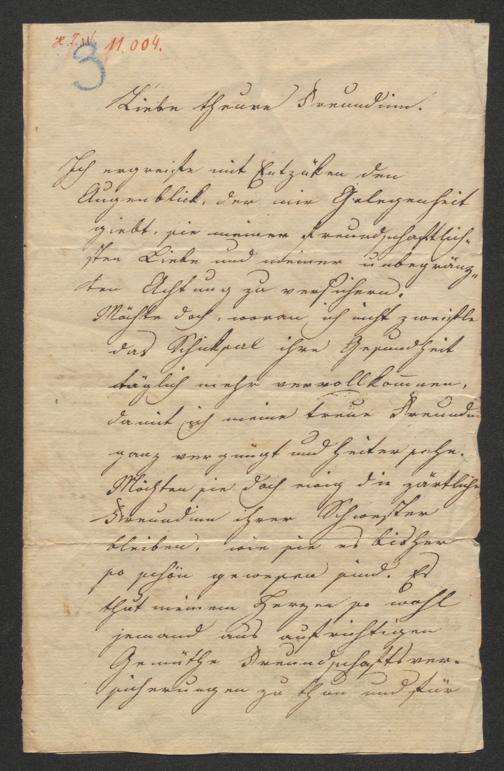 H.I.N. 11.004.
3
Liebe theure Freundinn.
Ich ergreiffe mit Entzüken den
Augenblick, der mir Gelegenheit
giebt, sie meiner freundschaftlich-
sten Liebe und meiner unbegränz-
ten Achtung zu versichern.
Möchte doch, woran ich nicht zweifle
das Schiksal ihre Gesundheit
täglich mehr vervollkomnen,
damit ich meine treue Freundin
ganz vergnügt und heiter sehe.
Möchten sie doch ewig die zärtliche
Freundinn ihrer Schwester
bleiben, wie sie es bisher
so schön gewesen sind. Es
thut meinem Herzen so wohl
jemand aus aufrichtigen
Gemüthe Freundschaftsver-
sicherungen zu thun und für